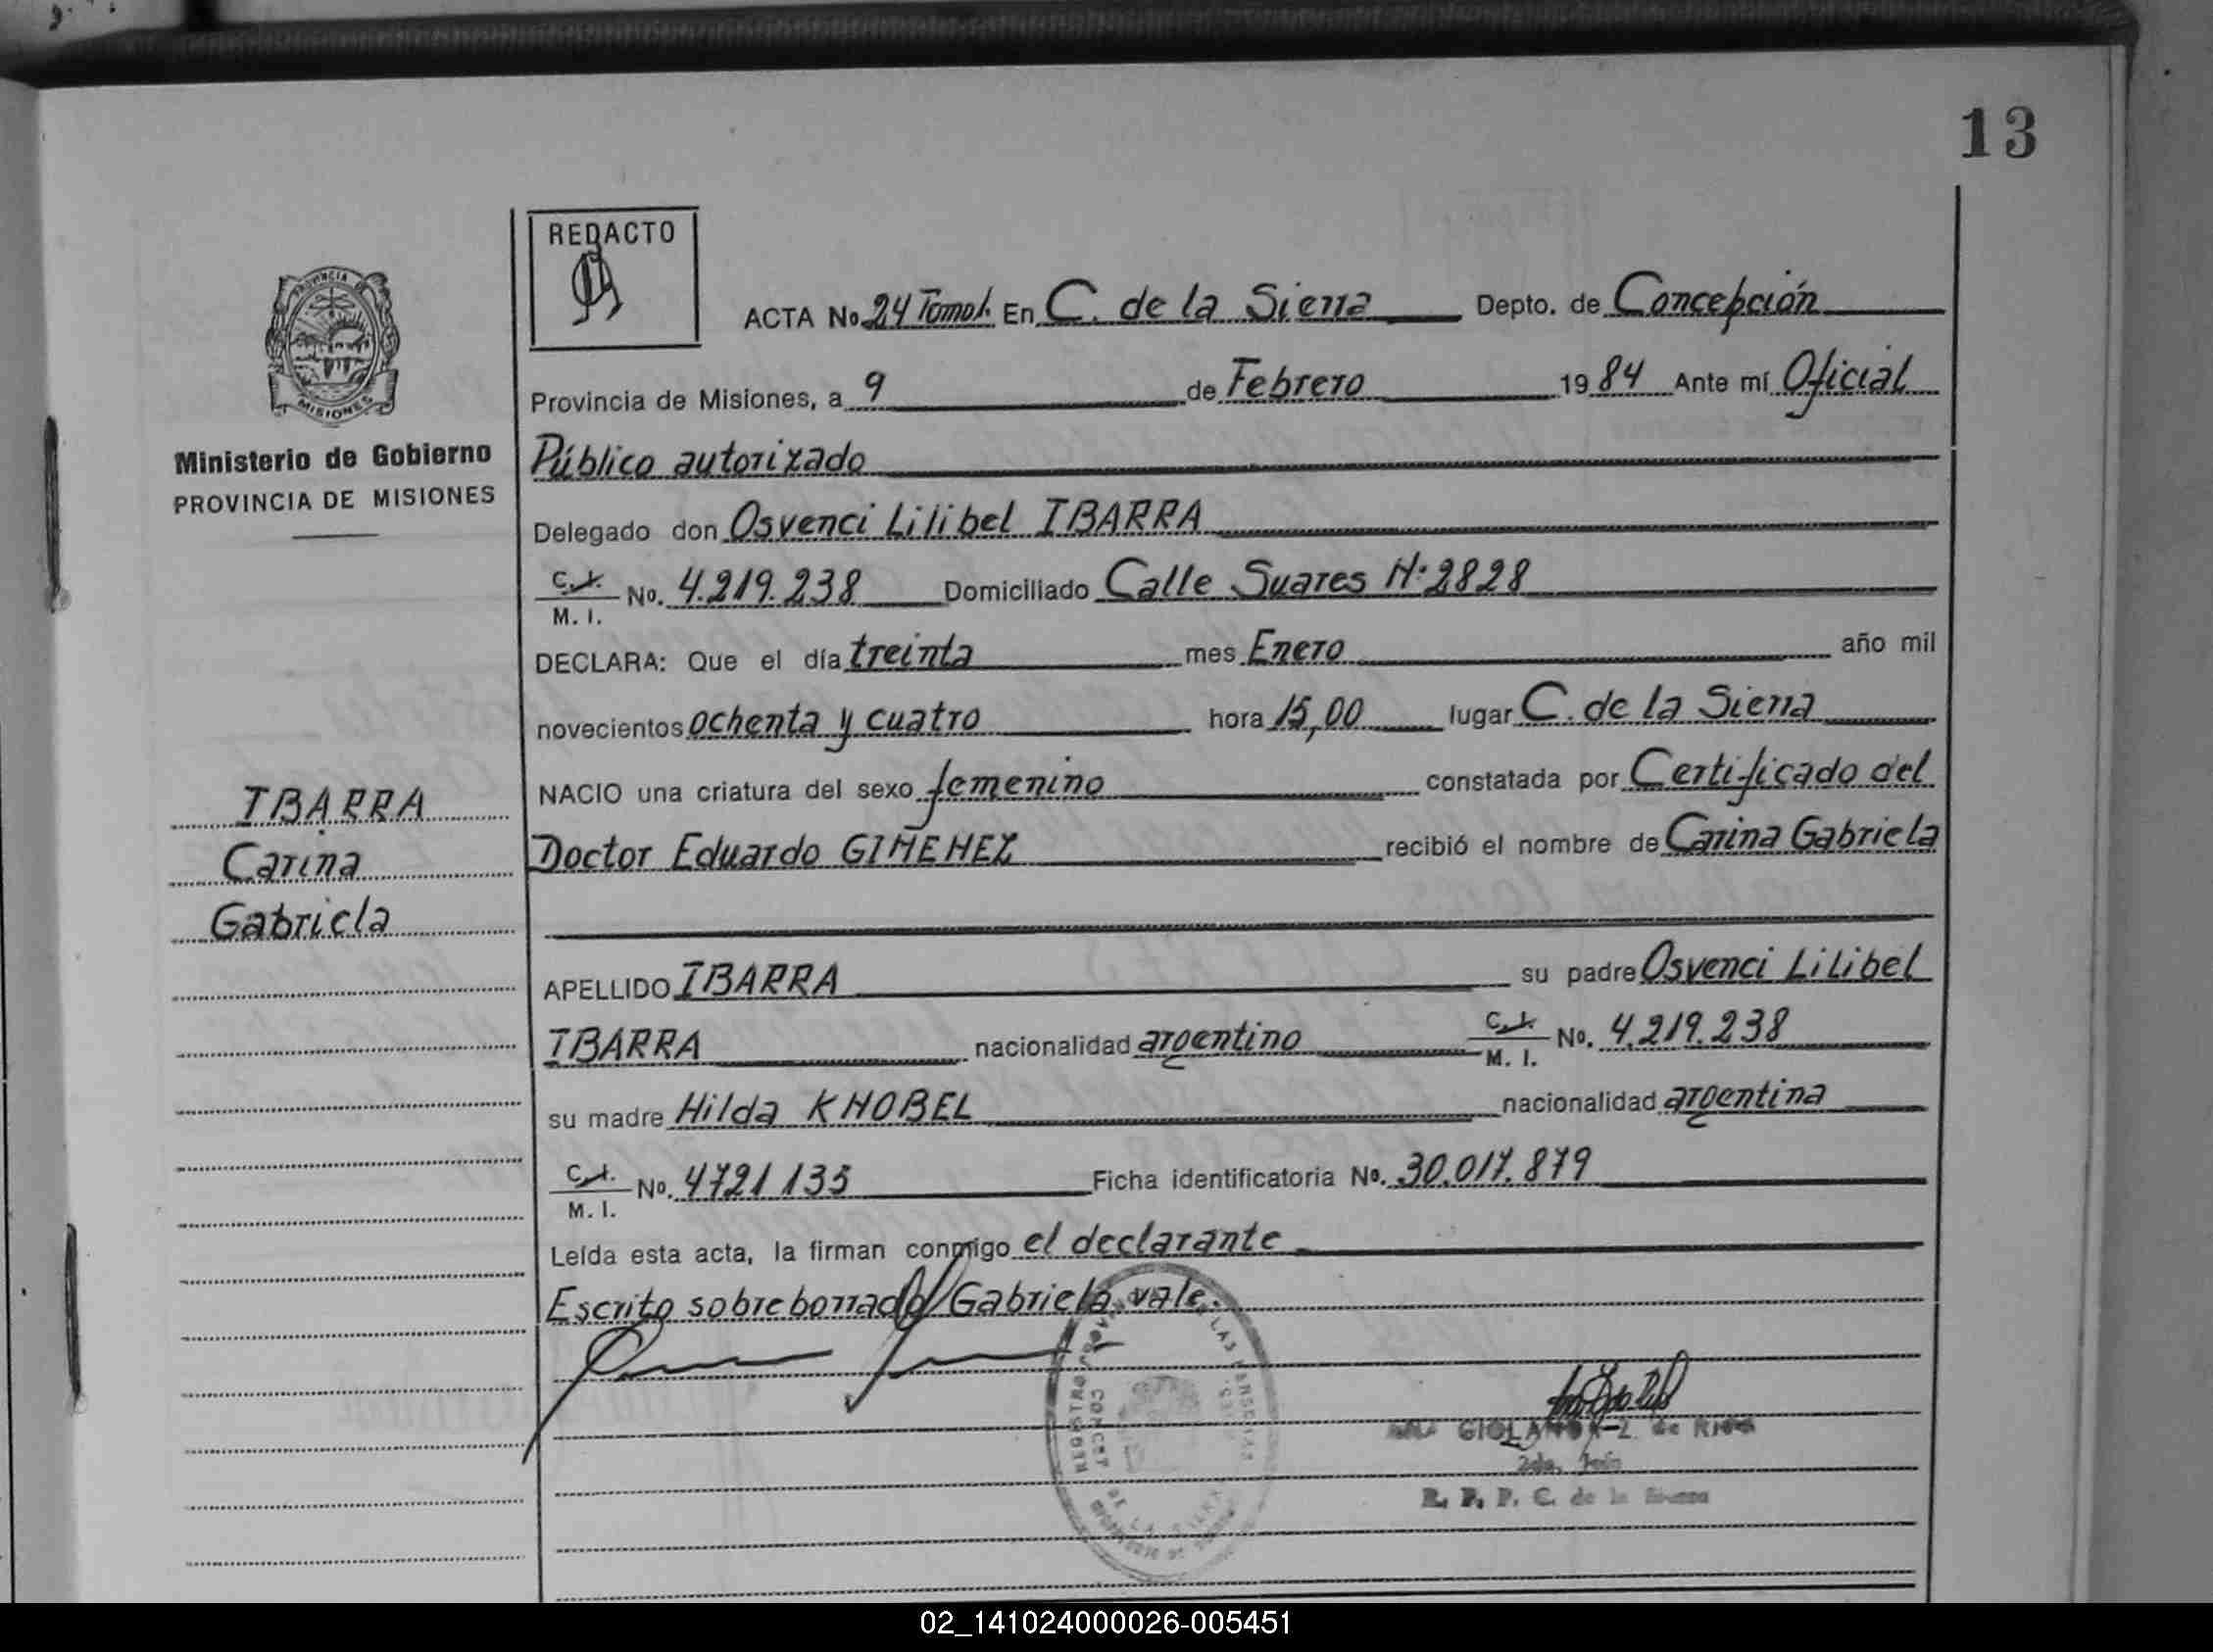 13
REDACTO
ACTA No 24 Tomo I. En C. de la Sierra Depto. de Concepción
Provincia de Misiones, a 9 de Febrero 1984 Ante mí Oficial
Público autorizado
Delegado don Osvenci Lilibel IBARRA
C.I. M. I. No. 4.219.238 Domiciliado Calle Suares N: 2828
DECLARA: Que el día treinta mes Enero año mil
novecientos ochenta y cuatro hora 15,00 lugar C. de la Sierra
NACIO una criatura del sexo femenino constatada por Certificado del
Doctor Eduardo GIMENEZ recibió el nombre de Carina Gabriela
APELLIDO IBARRA su padre Osvenci Lilibel
IBARRA nacionalidad argentino C.I. M. I. No. 4.219.238
su madre Hilda KNOBEL nacionalidad argentina
C.I. M. I. No. 4721135 Ficha identificatoria No. 30.017.879
Leída esta acta, la firman conmigo el declarante
Escrito sobre borrado/Gabriela.vale.
PROVINCIA DE
MISIONES
Ministerio de Gobierno
PROVINCIA DE MISIONES
IBARRA
Carina
Gabriela
GIOLANDA Z. de RIOS
R. P. P. C. de la Sierra
02_141024000026-005451